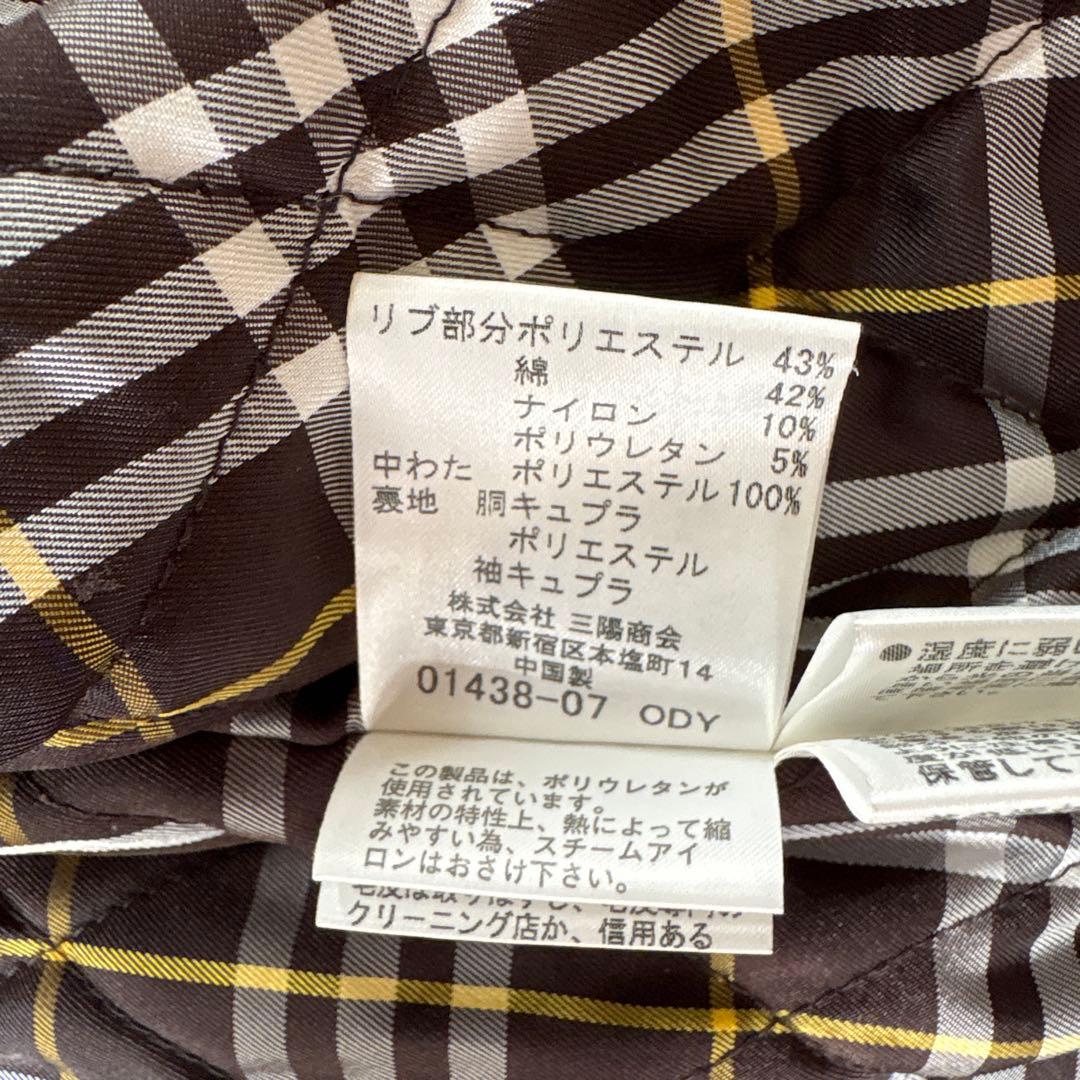 リブ部分ポリエステル 43%
綿 42%
ナイロン 10%
ポリウレタン 5%
中わた ポリエステル100%
裏地 胴キュプラ
ポリエステル
袖キュプラ
株式会社 三陽商会
東京都新宿区本塩町14
中国製
01438-07 ODY
この製品は、ポリウレタンが
使用されています。
素材の特性上、熱によって縮
みやすい為、スチームアイ
ロンはおさけ下さい。
毛皮は取りはずし、毛皮専門の
クリーニング店か、信用ある
湿度に弱い
保管して